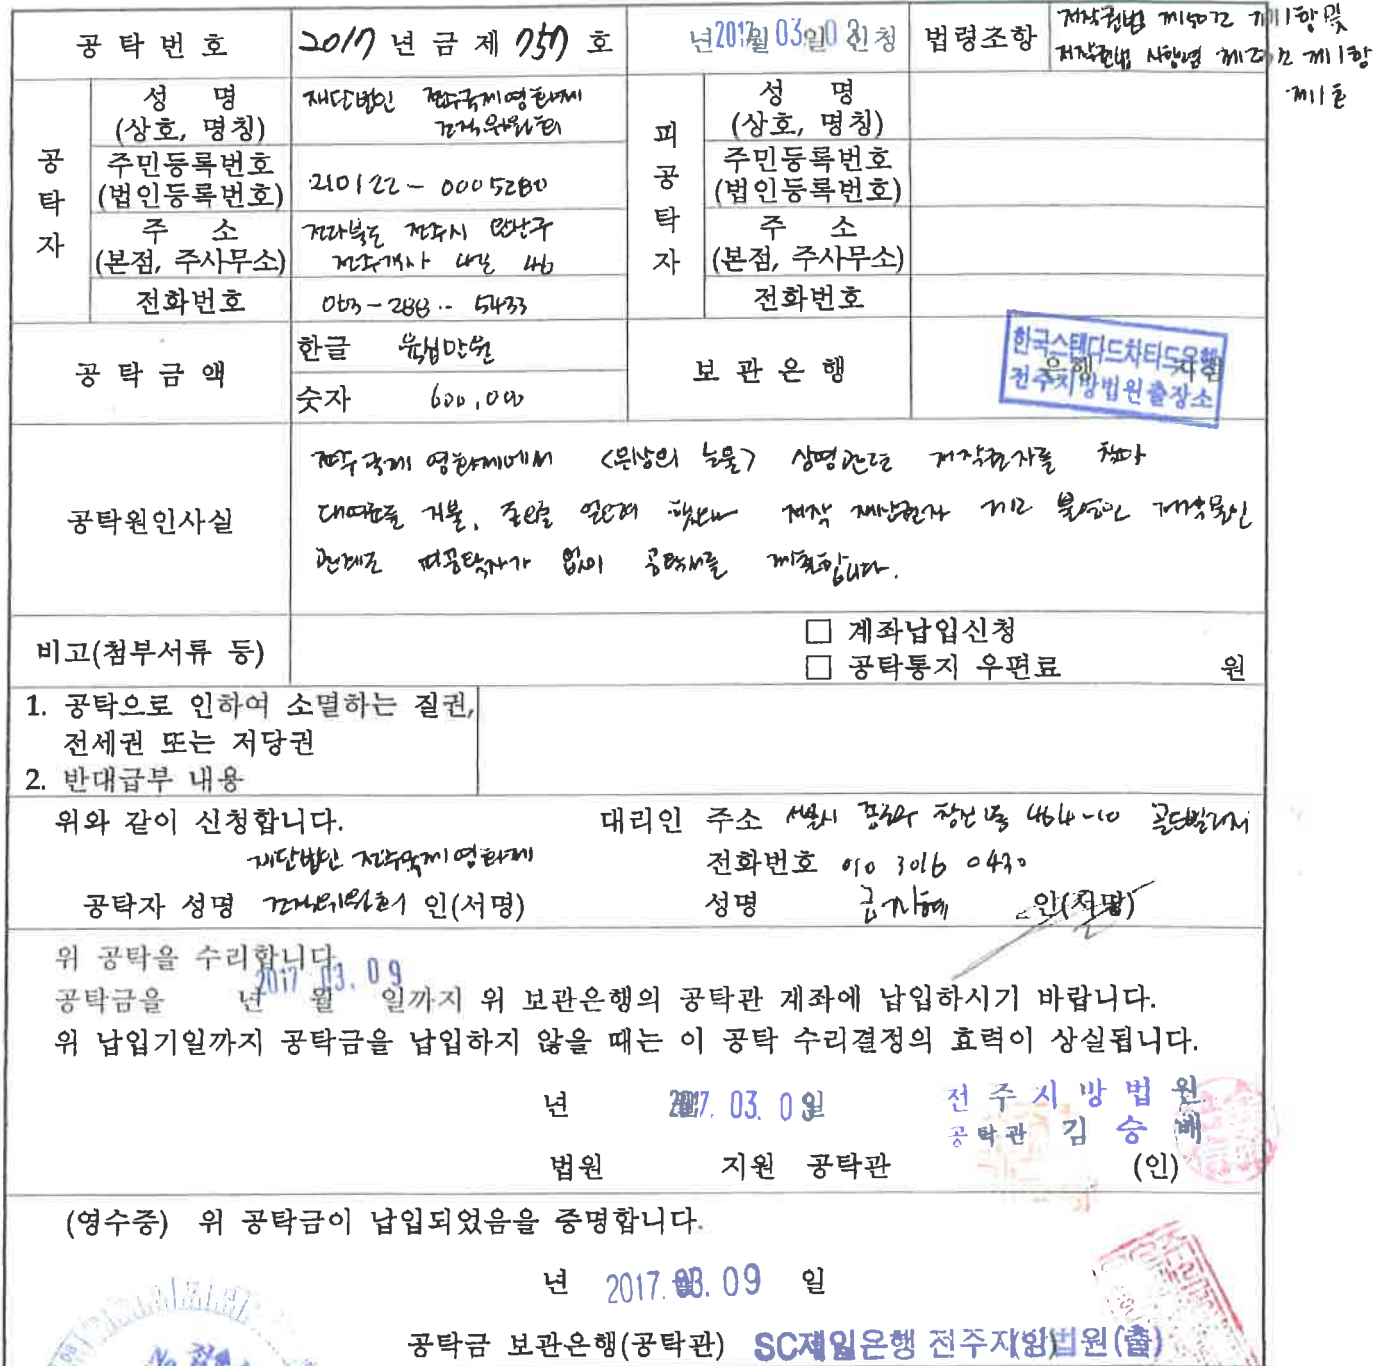 공 탁 번 호 2017 년 금 제 757 호 년 월 일 신청 2017 03 0 법령조항 저작권법 제50조 제1항 및
저작권법 시행령 제 조 제1항
제1호
공탁자 성 명 (상호, 명칭) 재단법인 전주국제영화제
조직위원회
주민등록번호 (법인등록번호) 210122-0005280
주 소 (본점, 주사무소) 전라북도 전주시 완산구
전주객사 길 46
전화번호 063-288-5433
피공탁자 성 명 (상호, 명칭)
주민등록번호 (법인등록번호)
주 소 (본점, 주사무소)
전화번호
공 탁 금 액 한글 육십만원
숫자 600,000
보 관 은 행 은행 지점
한국스탠다드차타드은행
전주지방법원출장소
공탁원인사실 전주국제영화제에서 눈물> 상영관련 저작권자를 찾아
거불, 저작 재산권자 불명인 저작물인
관계로 피공탁자가 없이 공탁서를 제출합니다.
비고(첨부서류 등) □ 계좌납입신청
□ 공탁통지 우편료 원
1. 공탁으로 인하여 소멸하는 질권,
전세권 또는 저당권
2. 반대급부 내용
위와 같이 신청합니다. 대리인 주소 서울시 종로구 창신동 464-10
재단법인 전주국제영화제 전화번호 010 3016 0430
공탁자 성명 조직위원회 인(서명) 성명 금지혜 인(서명)
위 공탁을 수리합니다.
공탁금을 년 월 일까지 위 보관은행의 공탁관 계좌에 납입하시기 바랍니다.
2017 03. 09
위 납입기일까지 공탁금을 납입하지 않을 때는 이 공탁 수리결정의 효력이 상실됩니다.
년 월 일 2017. 03. 0 전 주 지 방 법 원
공탁관 김 승 배
법원 지원 공탁관 (인)
(영수증) 위 공탁금이 납입되었음을 증명합니다.
년 2017. 03. 09 일
공탁금 보관은행(공탁관) SC제일은행 전주지방법원(출) (인)